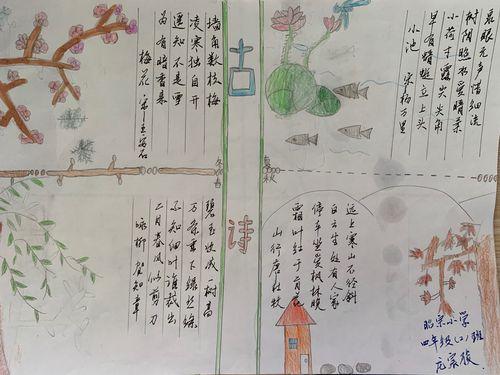 墙角数枝梅
凌寒独自开
遥知不是雪
为有暗香来
梅花 宋王安石
古诗
泉眼无声惜细流
树阴照水爱晴柔
小荷才露尖尖角
早有蜻蜓立上头
小池 宋杨万里
冬春
夏秋
碧玉妆成一树高
万条垂下绿丝绦
不知细叶谁裁出
二月春风似剪刀
咏柳 贺知章
远上寒山石径斜
白云生处有人家
停车坐爱枫林晚
霜叶红于二月花
山行 唐杜牧
小学
四年级(2)班